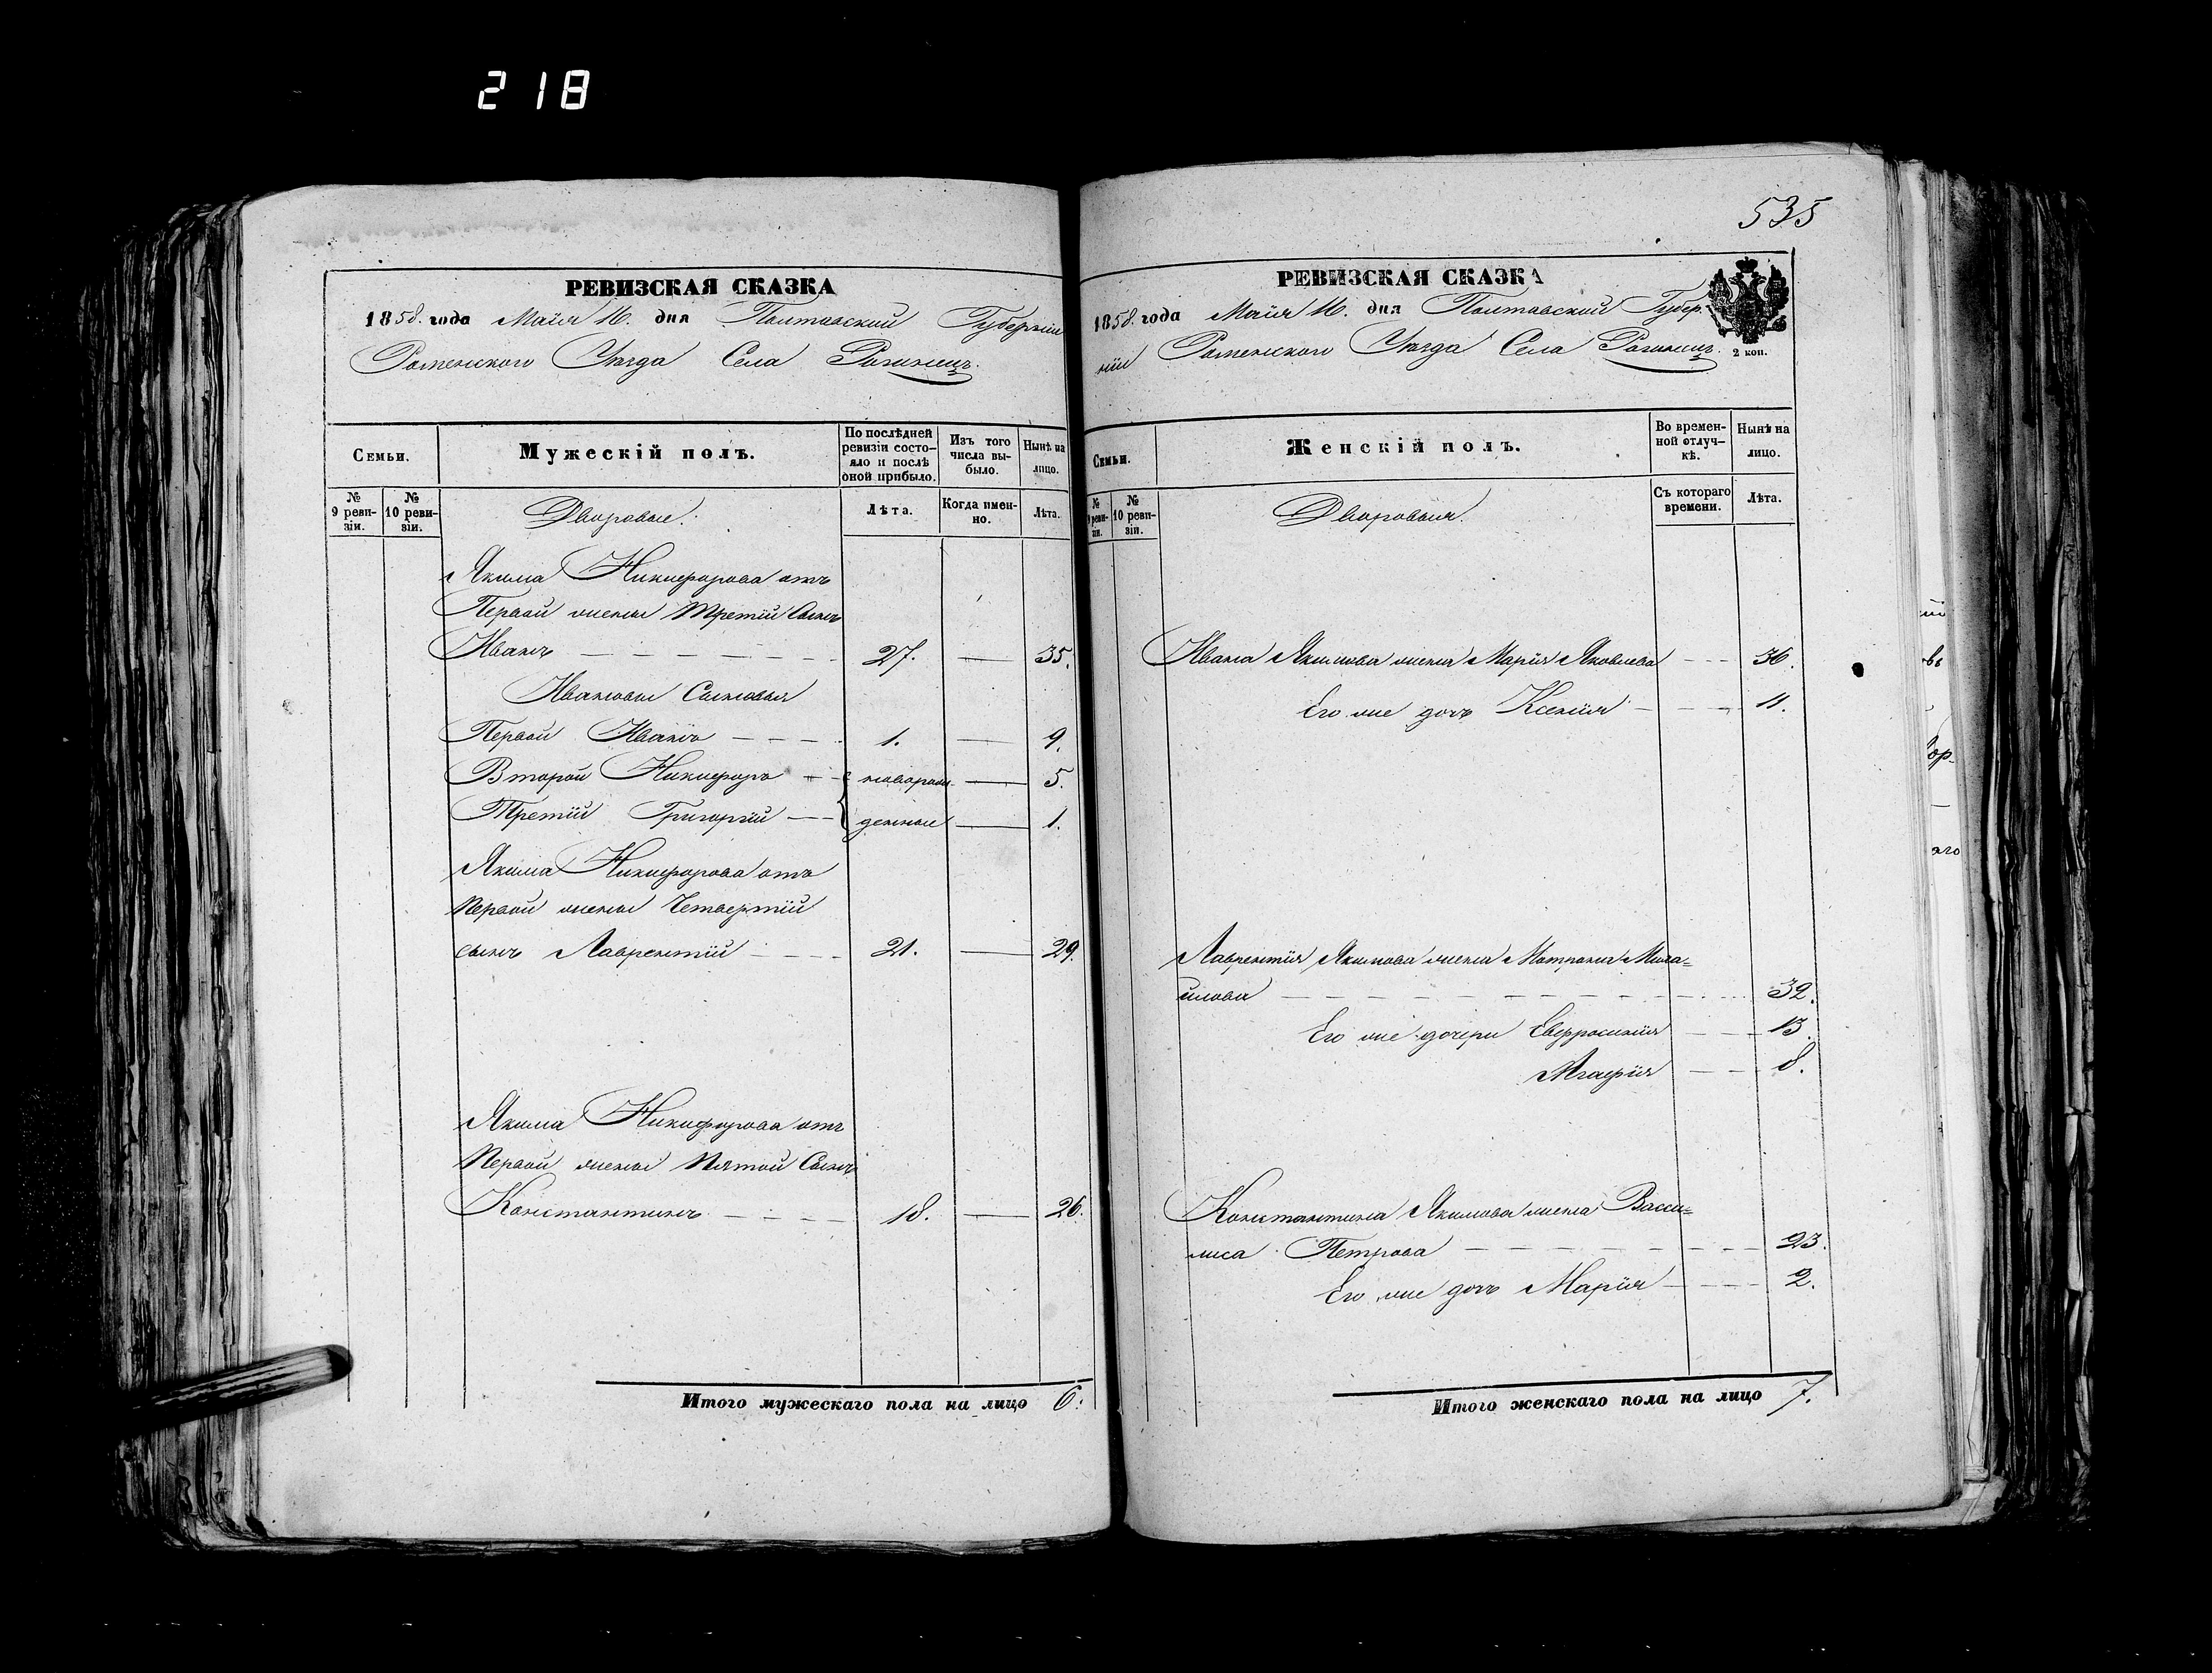 218
РЕВИЗСКАЯ СКАЗКА
1858. года Маія 16. дня Полтавской Губерніи
Роменского Уѣзда Села Рогинец.
Семьи.
Мужескій полъ.
По послѣдней ревизіи состо-
яло и послѣ
оной прибыло.
Изъ того
числа вы-
было.
Нынѣ на
лицо.
№
9 реви-
зіи.
№
10 реви-
зіи.
Дворовые.
Лѣта.
Когда имен-
но.
Лѣта.
Якима Никифорова отъ
Первой жены Третій Сынъ
Иванъ 27. 35.
Ивановы Сыновья
Первой Иванъ 1. 9.
Второй Никифоръ новорож- 5.
Третій Григорій денные 1.
Якима Никифорова отъ
Первой жены Четвертій
сынъ Лаврентій 21. 29.
Якима Никифорова отъ
Первой жены Пятой Сынъ
Константинъ 18. 26.
Итого мужескаго пола на лицо 6.
535
РЕВИЗСКАЯ СКАЗКА
1858. года Маія 16. дня Полтавской Губер-
ніи Роменского Уѣзда Села Рогинец.
2 коп.
Семьи.
Женскій полъ.
Во времен-
ной отлуч-
кѣ.
Нынѣ на
лицо.
№
9 реви-
зіи.
№
10 реви-
зіи.
Дворовыя.
Съ котораго
времени.
Лѣта.
Ивана Якимова жена Марія Яковлева 36.
Его же дочь Ксенія 11.
Лаврентія Якимова жена Матрона Миха=
йлова 32.
Его же дочери Евфросинія 13.
Агафія 8.
Константина Якимова жена Васси=
лиса Петрова 23.
Его же дочь Марія 2.
Итого женскаго пола на лицо 7.